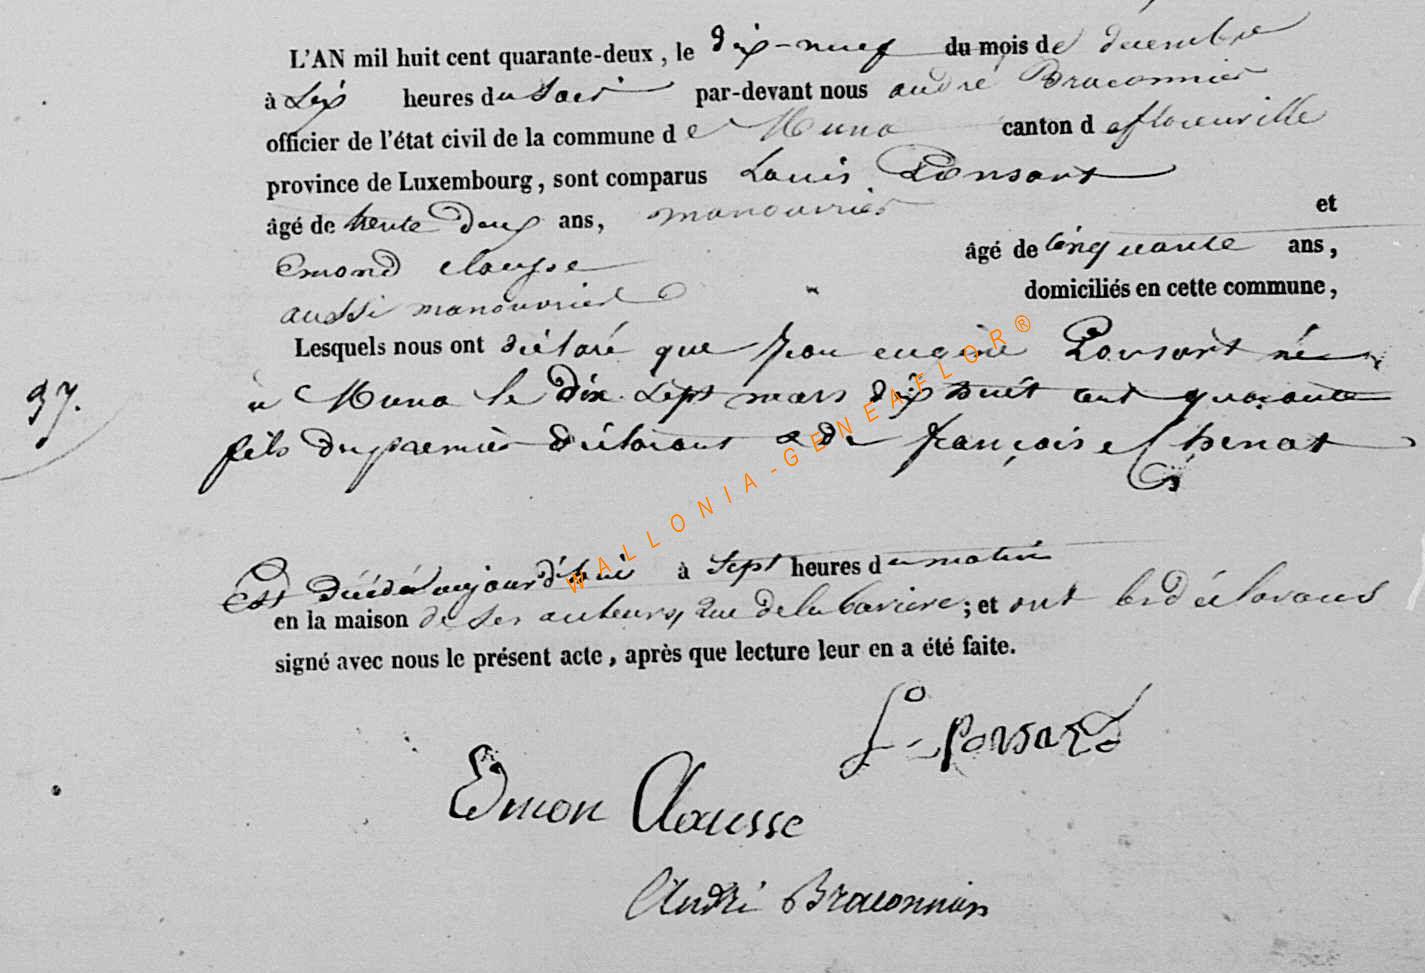 L'AN mil huit cent quarante-deux, le dix-neuf du mois de décembre
à six heures du soir par-devant nous andré Braconnier
officier de l'état civil de la commune de Muno canton de florenville
province de Luxembourg, sont comparus Louis Ponsart
âgé de trente deux ans, manouvrier et
Emond Clausse âgé de cinquante ans,
aussi manouvrier domiciliés en cette commune,
Lesquels nous ont déclaré que jean eugène Ponsart né
37. a Muno le dix sept mars dix huit cent quarante
fils du premier déclarant & de françoise
Est décédé aujourd'hui à sept heures du matin
en la maison de ses auteurs, rue de la ; et ont les déclarans
signé avec nous le présent acte, après que lecture leur en a été faite.
Ponsard
Emon Clausse
André Braconnier
WALLONIA-GENEAFLOR®